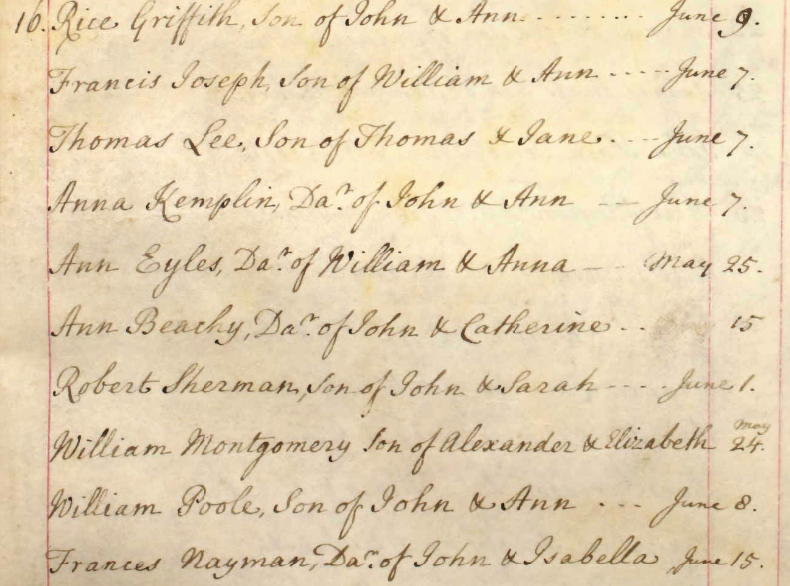 16. Rice Griffith, Son of John & Ann ......... June 9.
Francis Joseph, Son of William & Ann ----- June 7.
Thomas Lee, Son of Thomas & Jane. --- June 7.
Anna Kemplin, Dar. of John & Ann -- June 7.
Ann Eyles, Dar. of William & Anna -- May 25.
Ann Beachy, Dar. of John & Catherine .. 15
Robert Sherman, Son of John & Sarah ---- June 1.
William Montgomery Son of Alexander & Elizabeth May 24.
William Poole, Son of John & Ann ... June 8.
Frances Nayman, Dar. of John & Isabella June 15.